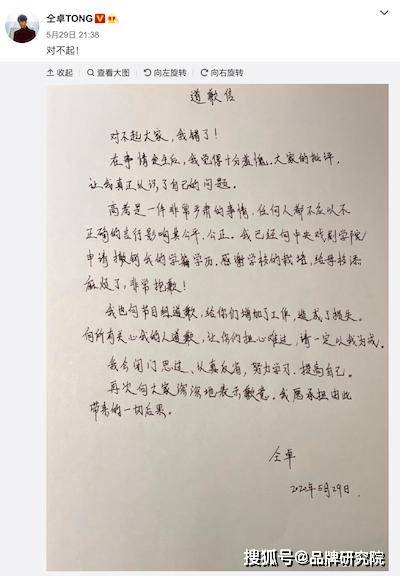 仝卓TONG
5月29日 21:38
对不起!
收起 查看大图 向左旋转 向右旋转
道歉信
对不起大家,我错了!
在事情发生后,我觉得十分羞愧。大家的批评,
让我真正认识了自己的问题。
高考是一件非常严肃的事情,任何人都不应以不
正确的言行影响其公平、公正。我已经向中央戏剧学院
申请撤销我的学籍学历。感谢学校的栽培,给母校添
麻烦了,非常抱歉!
我也向节目组道歉,给你们增加了工作,造成了损失。
向所有关心我的人道歉,让你们担心难过,请一定以我为戒。
我会闭门思过、认真反省,努力学习、提高自己。
再次向大家深深地表示歉意。我愿承担由此
带来的一切后果。
仝卓
2020年5月29日.
搜狐号@品牌研究院